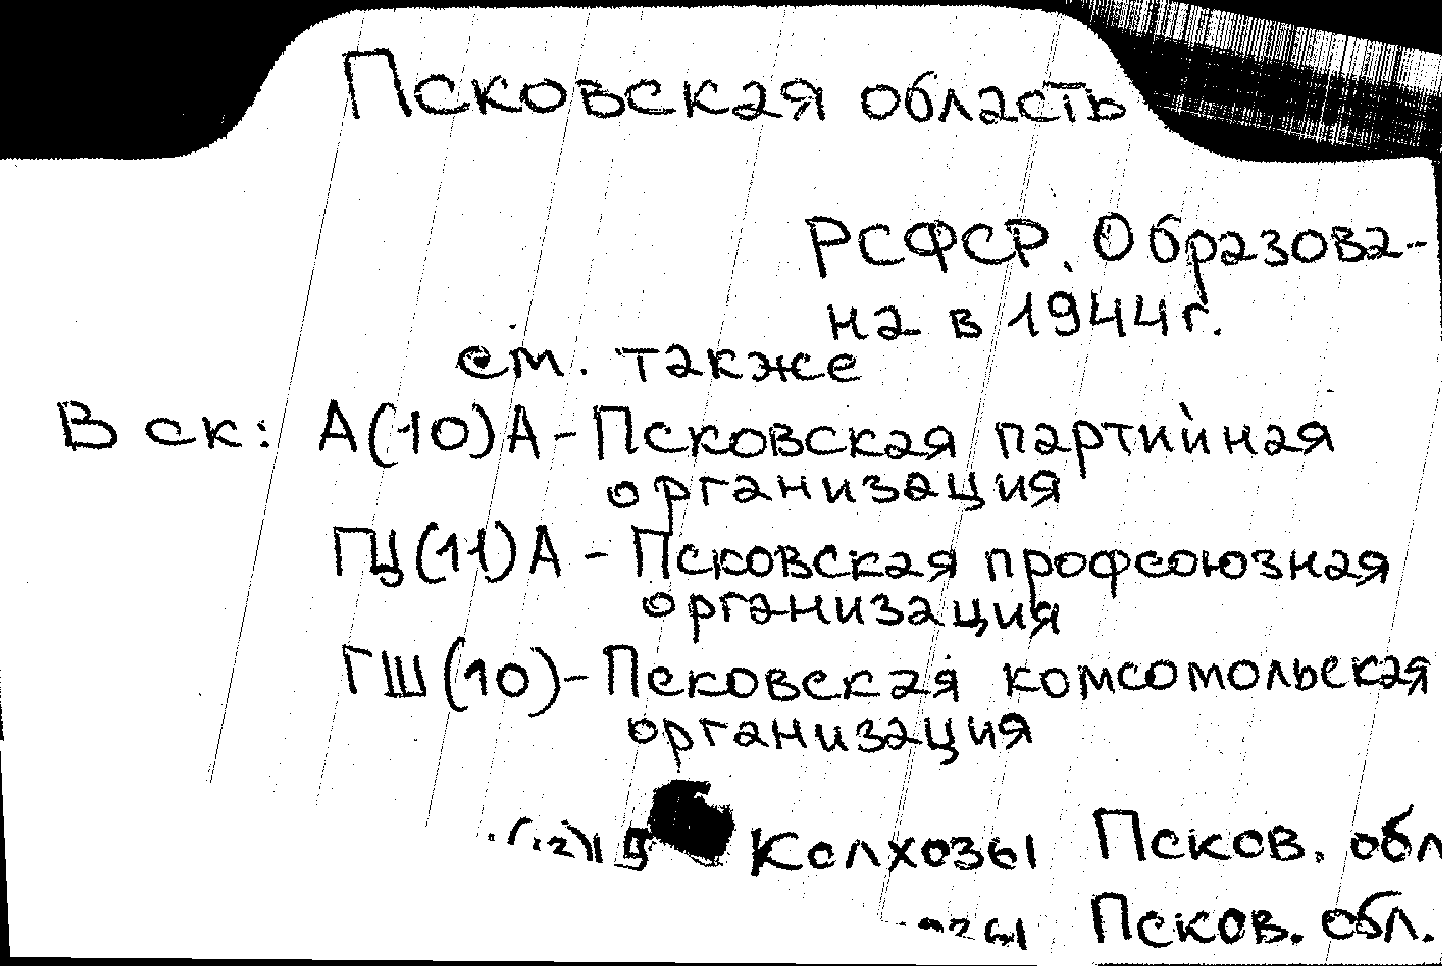 Псковская область
РСФСР. Образова-
на в 1944г.
см. также
В ск: А(10)А - Псковская партийная
организация
ГЦ(11)А - Псковская профсоюзная
организация
ГШ(10) - Псковская комсомольская
организация
Колхозы Псков. обл
Псков. обл.